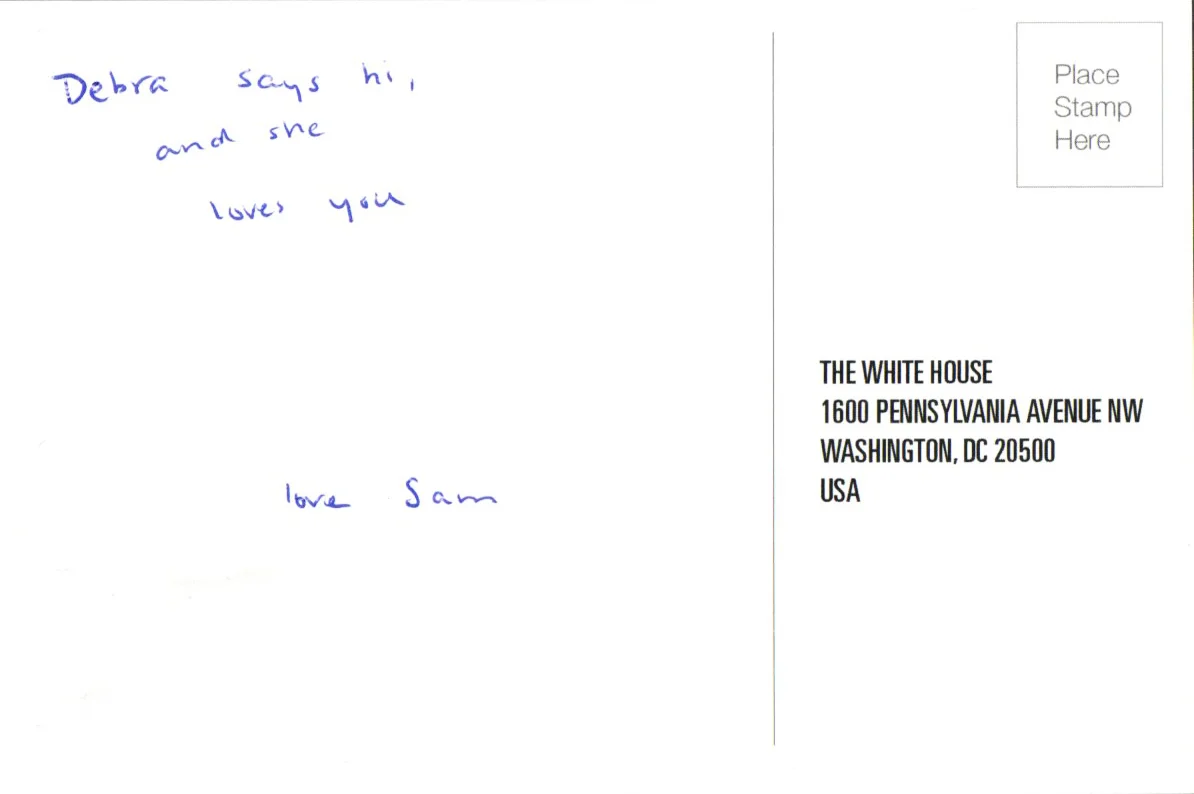 Debra says hi,
and she
loves you
love Sam
Place
Stamp
Here
THE WHITE HOUSE
1600 PENNSYLVANIA AVENUE NW
WASHINGTON, DC 20500
USA